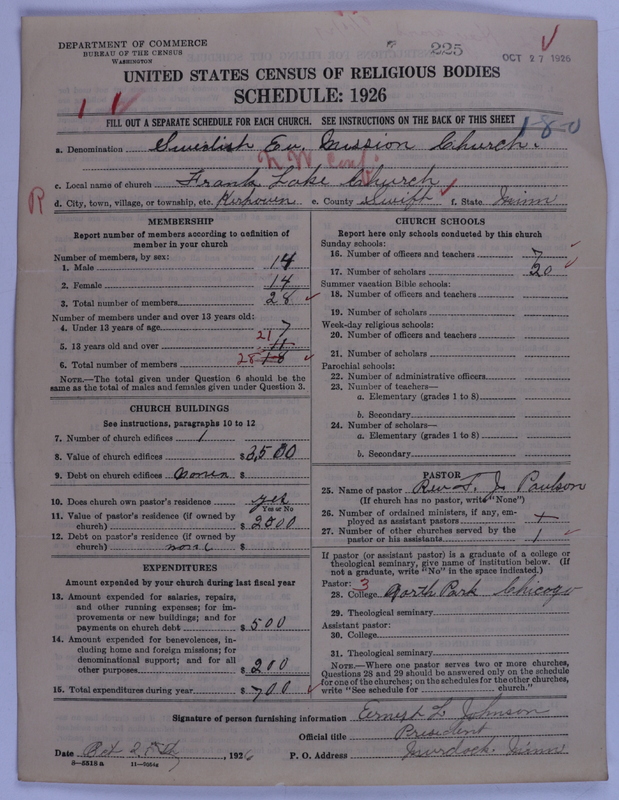 DEPARTMENT OF COMMERCE
BUREAU OF THE CENSUS
WASHINGTON
225
OCT 27 1926
UNITED STATES CENSUS OF RELIGIOUS BODIES
SCHEDULE: 1926
1
FILL OUT A SEPARATE SCHEDULE FOR EACH CHURCH. SEE INSTRUCTIONS ON THE BACK OF THIS SHEET
180
a. Denomination Swedish Ev. Mission Church.
N W Conf.
c. Local name of church Frank Lake Church
R
d. City, town, village, or township, etc. Kerkoven e. County Swift f. State Minn
MEMBERSHIP
Report number of members according to definition of member in your church
Number of members, by sex:
1. Male 14
2. Female 14
3. Total number of members 28
Number of members under and over 13 years old:
4. Under 13 years of age 7
5. 13 years old and over 21 11
6. Total number of members 28 18
NOTE.—The total given under Question 6 should be the same as the total of males and females given under Question 3.
CHURCH BUILDINGS
See instructions, paragraphs 10 to 12
7. Number of church edifices 1
8. Value of church edifices $3,500
9. Debt on church edifices $
10. Does church own pastor's residence yes
Yes or No
11. Value of pastor's residence (if owned by church) $2500
12. Debt on pastor's residence (if owned by church) none $
EXPENDITURES
Amount expended by your church during last fiscal year
13. Amount expended for salaries, repairs, and other running expenses; for improvements or new buildings; and for payments on church debt $500
14. Amount expended for benevolences, including home and foreign missions; for denominational support; and for all other purposes $200
15. Total expenditures during year $700
CHURCH SCHOOLS
Report here only schools conducted by this church
Sunday schools:
16. Number of officers and teachers 7
17. Number of scholars 20
Summer vacation Bible schools:
18. Number of officers and teachers
19. Number of scholars
Week-day religious schools:
20. Number of officers and teachers
21. Number of scholars
Parochial schools:
22. Number of administrative officers
23. Number of teachers—
a. Elementary (grades 1 to 8)
b. Secondary
24. Number of scholars—
a. Elementary (grades 1 to 8)
b. Secondary
PASTOR
25. Name of pastor Rev. T. J. Paulson
(If church has no pastor, write "None")
26. Number of ordained ministers, if any, employed as assistant pastors
27. Number of other churches served by the pastor or his assistants 1
If pastor (or assistant pastor) is a graduate of a college or theological seminary, give name of institution below. (If not a graduate, write "No" in the space indicated.)
Pastor: 3
28. College North Park Chicago
29. Theological seminary
Assistant pastor:
30. College
31. Theological seminary
NOTE.—Where one pastor serves two or more churches, Questions 28 and 29 should be answered only on the schedule for one of the churches; on the schedules for the other churches, write "See schedule for church."
Signature of person furnishing information Ernest L. Johnson
Official title President
Date Oct 25th, 1926 P. O. Address Murdock. Minn
8—5518 a 11—9064a